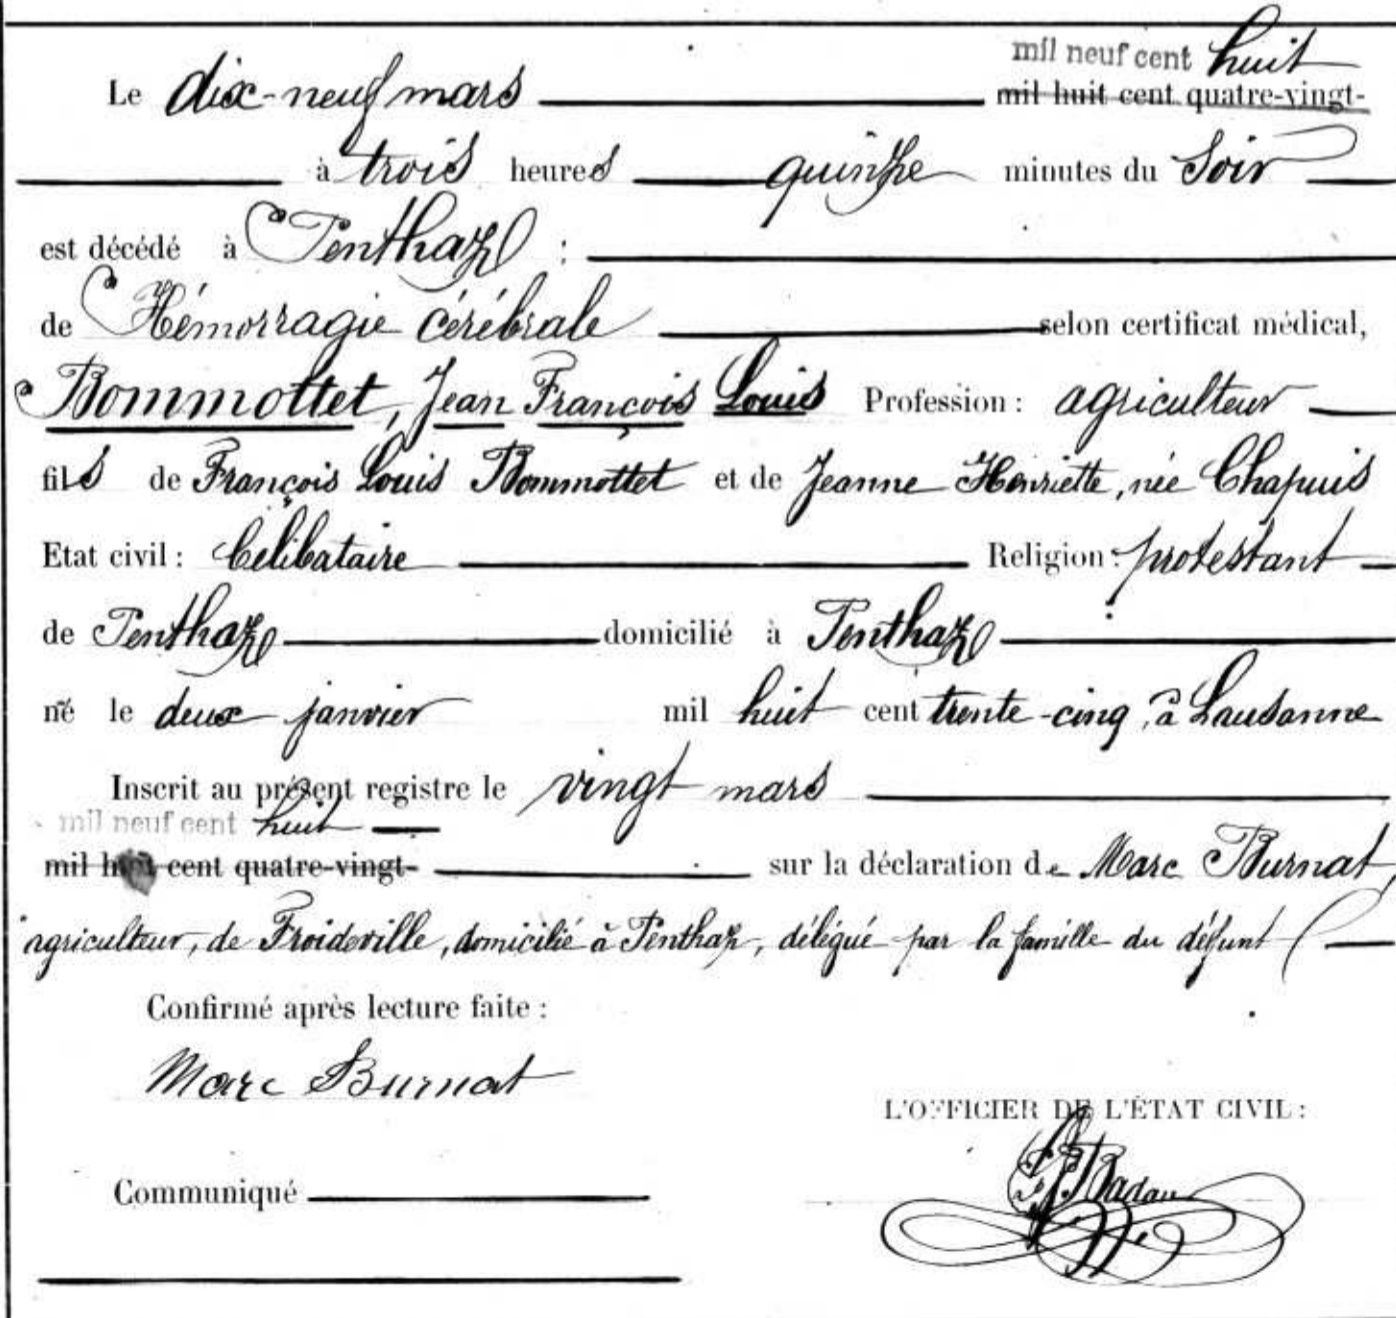 mil neuf cent huit
Le dix-neuf mars mil huit cent quatre-vingt-
à trois heures quinze minutes du Soir
est décédé à Penthaz :
de Hémorragie cérébrale selon certificat médical,
Bommottet, Jean François Louis Profession : agriculteur
fils de François Louis Bommottet et de Jeanne Henriette, née Chapuis
Etat civil : Célibataire Religion : protestant
de Penthaz domicilié à Penthaz
né le deux janvier mil huit cent trente-cinq, à Lausanne
Inscrit au présent registre le vingt mars
mil neuf cent huit
mil huit cent quatre-vingt- sur la déclaration de Marc Burnat,
agriculteur, de Froideville, domicilié à Penthaz, délégué par la famille du défunt
Confirmé après lecture faite :
Marc Burnat
L'OFFICIER DE L'ÉTAT CIVIL :
Communiqué